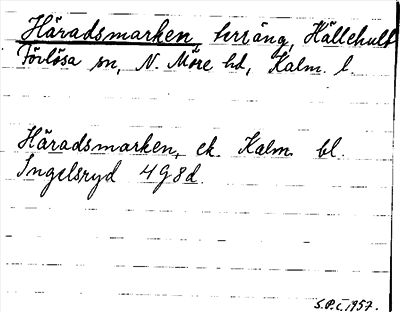 Häradsmarken, terräng, Hällehult
Förlösa sn, N. Möre hd, Kalm. l.
Häradsmarken, ek. Kalm. bl.
Ingelsryd 4G8d.
S.P.c. 1957.